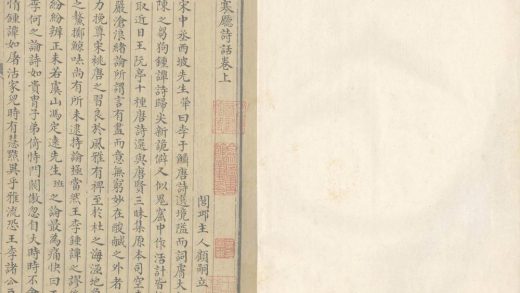 寒廳詩話卷上
閭邱主人顧嗣立
宋中丞西坡先生犖曰李于鱗唐詩選境隘而詞膚大
陳之芻狗鍾譚詩歸尖新詭僻又似鬼窟中作活計皆
取近日王阮亭十種唐詩選與唐賢三昧集原本司空
嚴滄浪緒論所謂言有盡而意無窮妙在酸鹹之外者
力挽尊宋祧唐之習良於風雅有裨至於杜之海涵地
之鰲擲鯨呿尚有所未逮持論極當然王李鍾譚之謬
紛紛辨正未若虞山馮定遠先生班之論最為痛快曰王
李何之論詩如貴胄子弟倚恃門閥傲忽自大時時不會
情鍾譚如屠沽家兒時有慧黠異乎雅流恐王李諸公